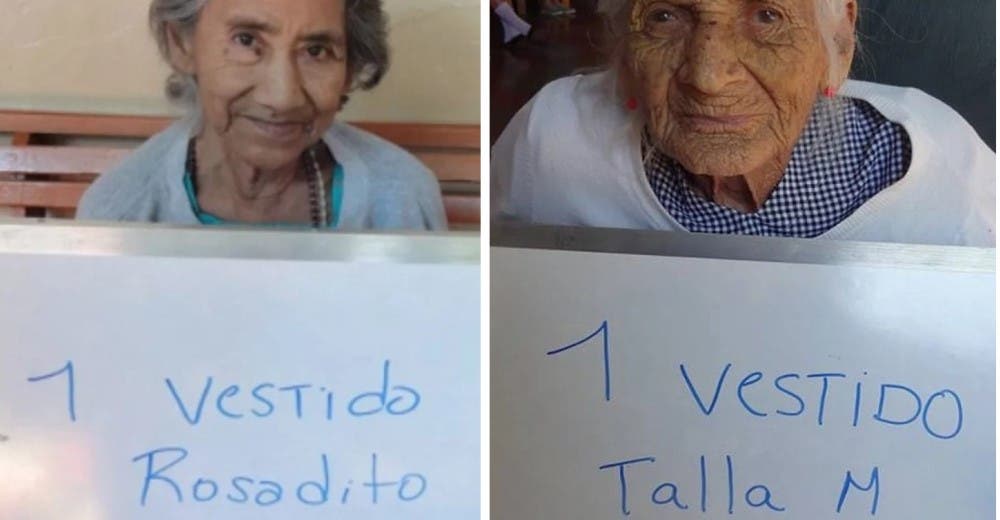 1 Vestido
Rosadito
1 VESTIDO
Talla M